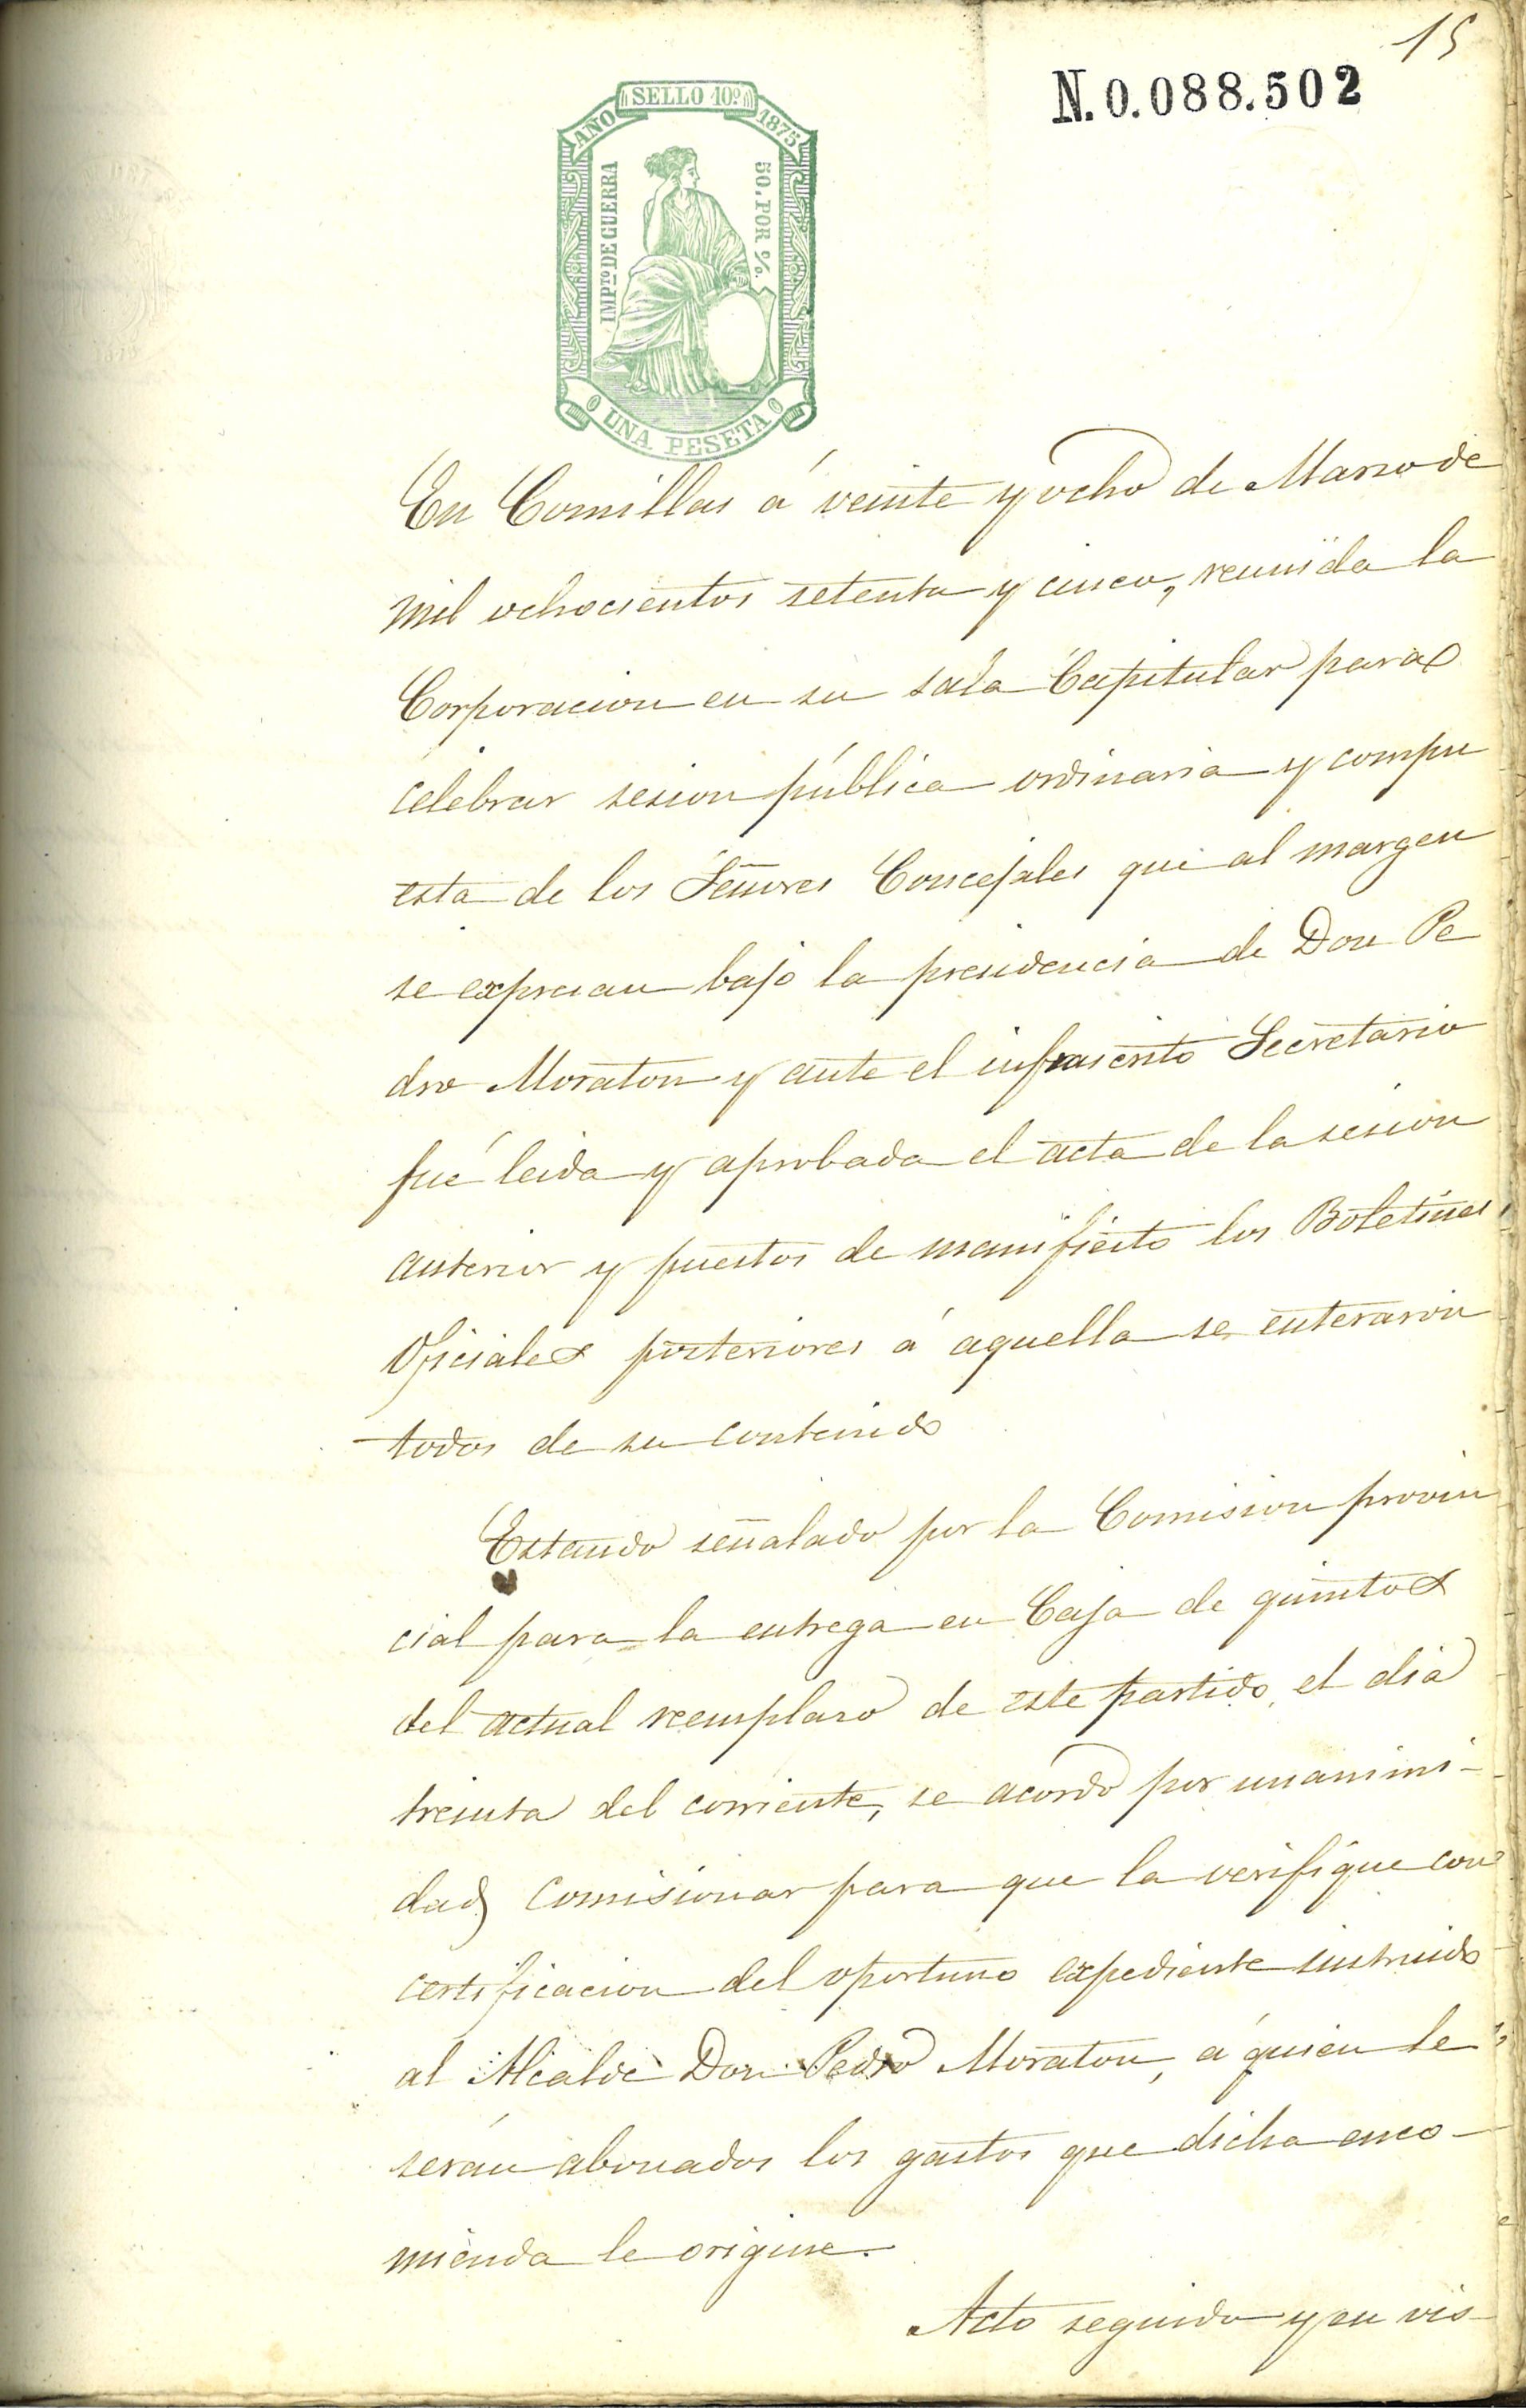 15
N.0.088.502
SELLO 10º
AÑO 1875
IMPTO DE GUERRA
50. POR %.
UNA PESETA
En Comillas á veinte y ocho de Marzo de
mil ochocientos setenta y cinco, reunida la
Corporacion en su sala Capitular para
celebrar sesion pública ordinaria y compu
esta de los Señores Concejales que al margen
se expresan bajo la presidencia de Don Pe
dro Moraton y ante el infrascrito Secretario
fué leida y aprobada el acta de la sesion
anterior y puestos de manifiesto los Boletines
Oficiales posteriores á aquella se enteraron
todos de su contenido
Estando señalado por la Comision provin
cial para la entrega en Caja de quintos
del actual reemplazo de este partido, el dia
treinta del corriente, se acordó por unanimi-
dad comisionar para que la verifique con
certificacion del oportuno expediente instruido
al Alcalde Don Pedro Moraton, á quien le
serán abonados los gastos que dicha enco-
mienda le origine.
Acto seguido y en vis-